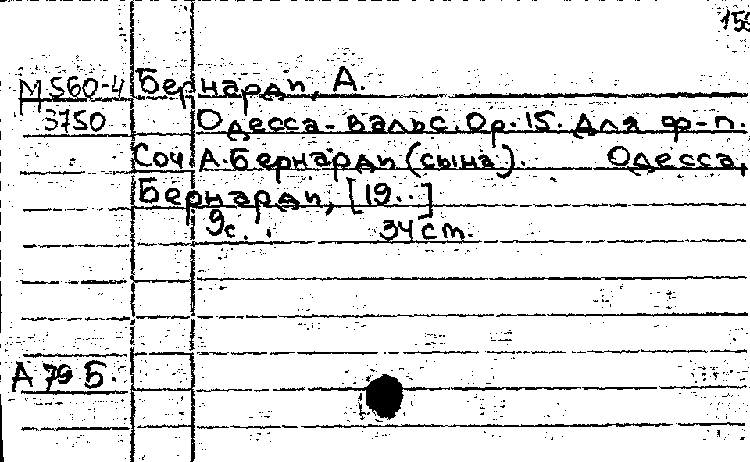 М 560-4 Бернарди, А.
3750 Одесса-вальс. Op. 15. Для ф-п.
Соч. А. Бернарди (сына). Одесса,
Бернарди, [19..]
9с. 34 ст.
А 79 Б.